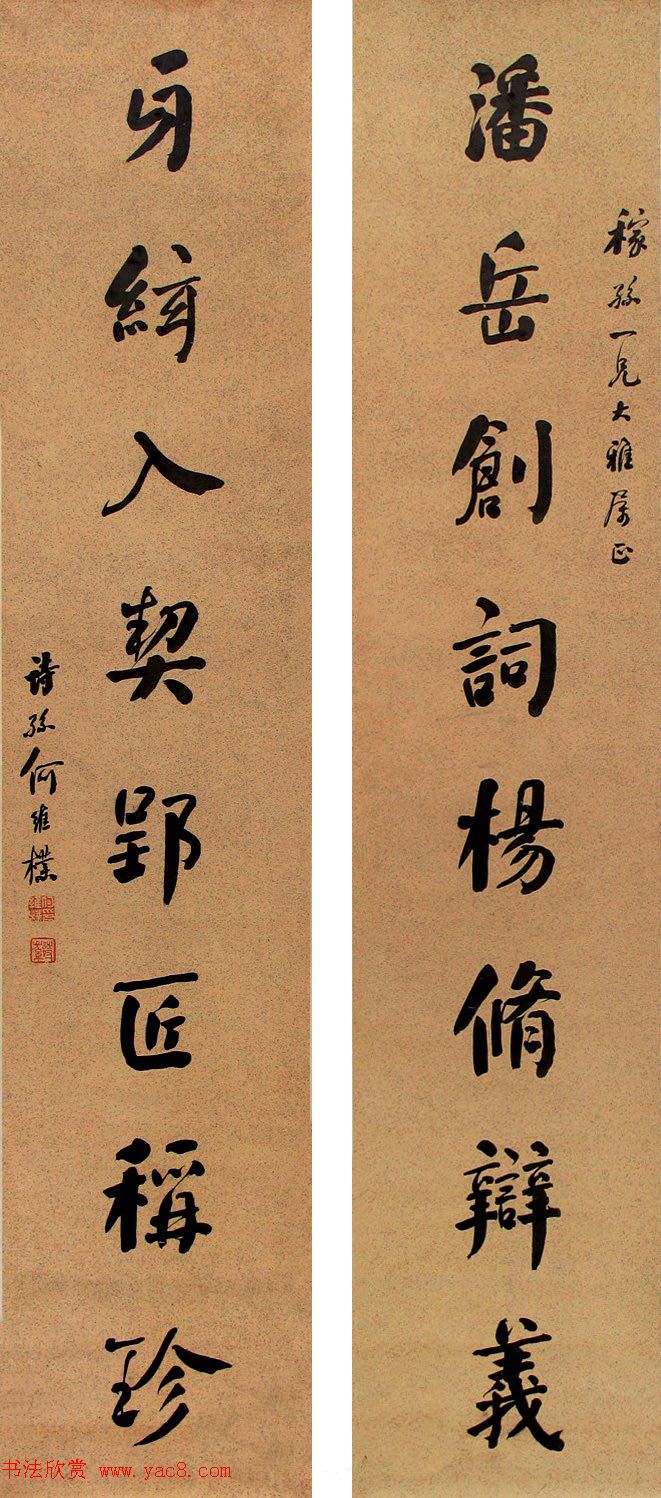 稼孫一兄大雅属正
潘岳創詞楊脩辯義
牙絃入契郢匠稱珍
詩孫何維樸
书法欣赏 www.yac8.com